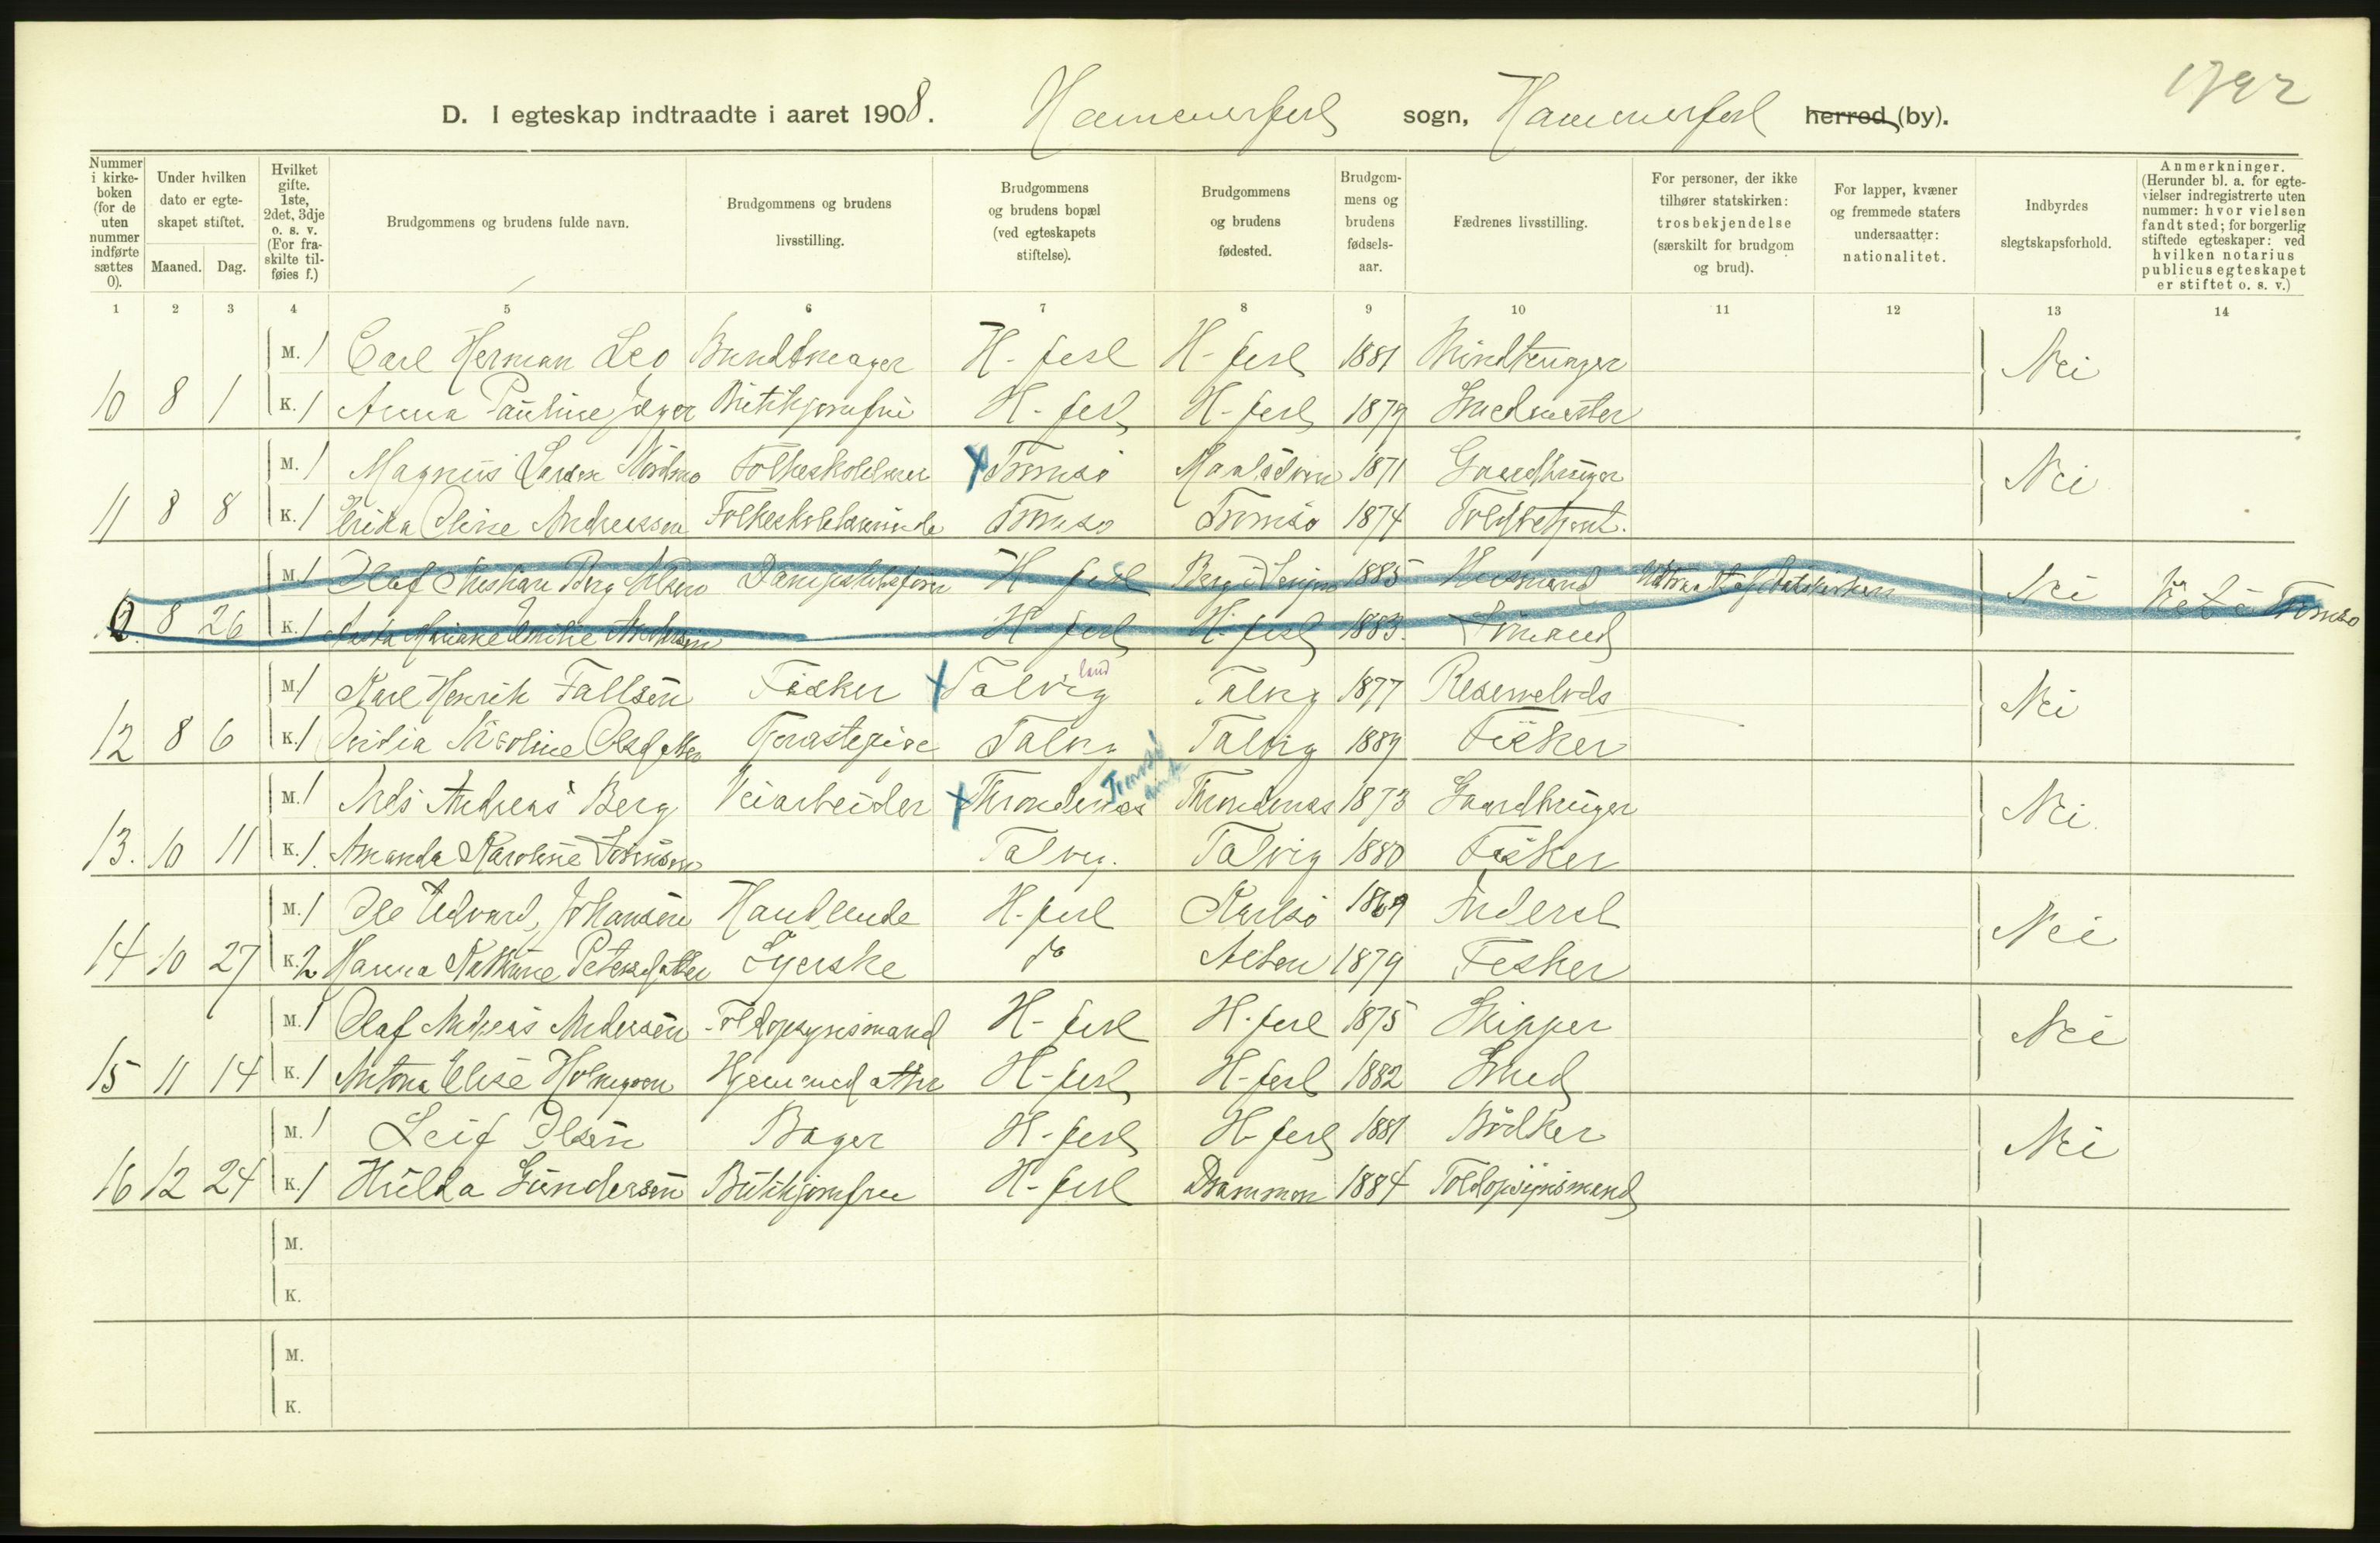 1792
D. I egteskap indtraadte i aaret 1908. Hammerfest sogn, Hammerfest herred (by).
Nummer i kirkeboken (for de uten nummer indførte sættes 0).
Under hvilken dato er egteskapet stiftet.
Maaned. Dag.
Hvilket gifte. 1ste, 2det, 3dje o. s. v. (For fraskilte tilføies f.)
Brudgommens og brudens fulde navn.
Brudgommens og brudens livsstilling.
Brudgommens og brudens bopæl (ved egteskapets stiftelse).
Brudgommens og brudens fødested.
Brudgommens og brudens fødselsaar.
Fædrenes livsstilling.
For personer, der ikke tilhører statskirken: trosbekjendelse (særskilt for brudgom og brud).
For lapper, kvæner og fremmede staters undersaatter: nationalitet.
Indbyrdes slegtskapsforhold.
Anmerkninger. (Herunder bl. a. for egtevielser indregistrerte uten nummer: hvor vielsen fandt sted; for borgerlig stiftede egteskaper: ved hvilken notarius publicus egteskapet er stiftet o. s. v.)
1 2 3 4 5 6 7 8 9 10 11 12 13 14
M. 1 Carl Herman Leo Bundtmager H-fest H-fest 1881 Nei
10 8 1 K. 1 Anna Pauline Jæger Butikjomfru H-fest H-fest 1879 Smedmester
M. 1 Magnus Larsen Nordmo Folkeskolelærer Tromsö Maalselven 1871 Gaardbruger Nei
11 8 8 K. 1 Erika Oline Andreassen Folkeskolelærerinde Tromsö Tromsö 1874 Toldbetjent.
M. 1 Olaf Berg H-fest Berg i Senjen 1885 Husmand Udtraadt af Statskirken Nei Tromsö
0. 8 26 K. 1 H-fest H-fest 1883.
M. 1 Karl Henrik Fallsen Fisker Talvig land Talvig 1877 Nei
12 8 6 K. 1 Nicoline Olsdatter Tjenestepige Talvig Talvig 1889 Fisker
M. 1 Nels Andreas Berg Veiarbeider Throndenæs Tromsö amt Throndenæs 1873 Gaardbruger Nei.
13. 10 11 K. 1. Amanda Karoline Talvig. Talvig 1880 Fisker
M. 1 Ole Edvard Johansen Handlende H-fest Karlsö 1869 Inderst Nei
14 10 27 K. 2 Hanna Katrine Petersdatter Syerske do Alten 1879 Fisker
M. 1 Olaf Andreas Andersen Toldopsynsmand H-fest H-fest 1875 Skipper Nei
15 11 14 K. 1 Antona Elise Holmgren Hjemmedatter H-fest H-fest 1882 Smed
M. 1 Leif Olsen Bager H-fest H-fest 1881 Bödker Nei
16 12 24 K. 1 Hulda Gundersen Butikjomfru H-fest Drammen 1884 Toldopsynsmand
M.
K.
M.
K.